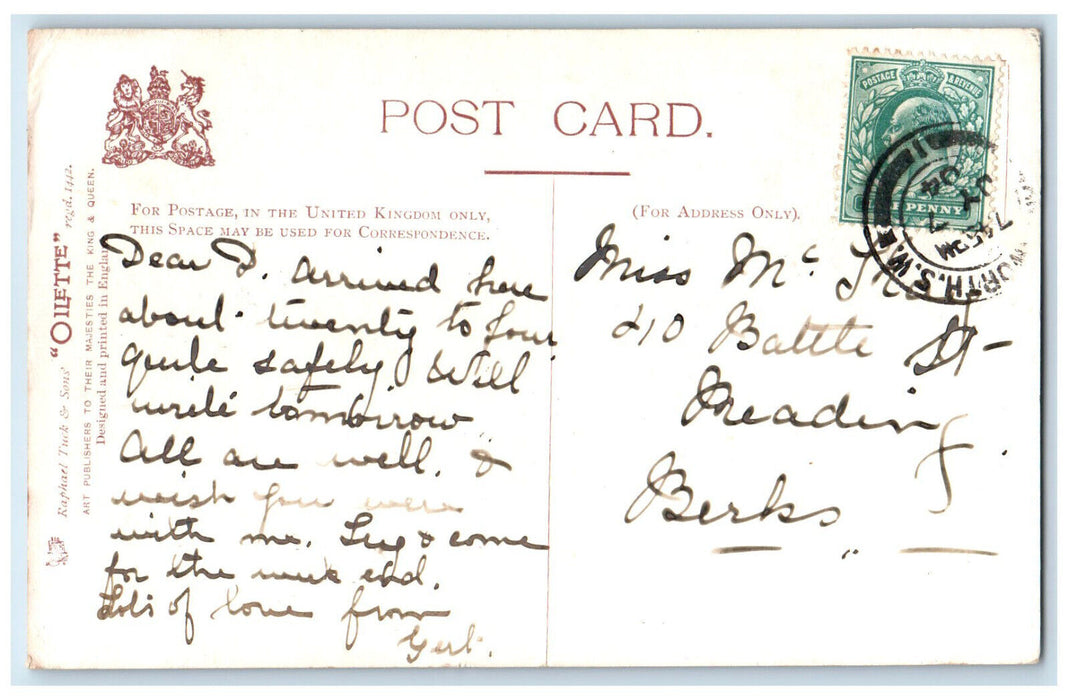 POST CARD.
FOR POSTAGE, IN THE UNITED KINGDOM ONLY,
THIS SPACE MAY BE USED FOR CORRESPONDENCE.
(FOR ADDRESS ONLY).
Raphael Tuck & Sons' "OILETTE" regd. 1442.
ART PUBLISHERS TO THEIR MAJESTIES THE KING & QUEEN.
Designed and printed in England
POSTAGE & REVENUE
PENNY
WORTH. S.W.
7 45 PM
JY 7
04
Dear D. Arrived here
about twenty to four
quite safely. Will
write tomorrow
All are well. &
wish you were
with me. Try & come
for the week end.
Lots of love from
Gert.
Miss Mc
210 Battle St
Reading
Berks